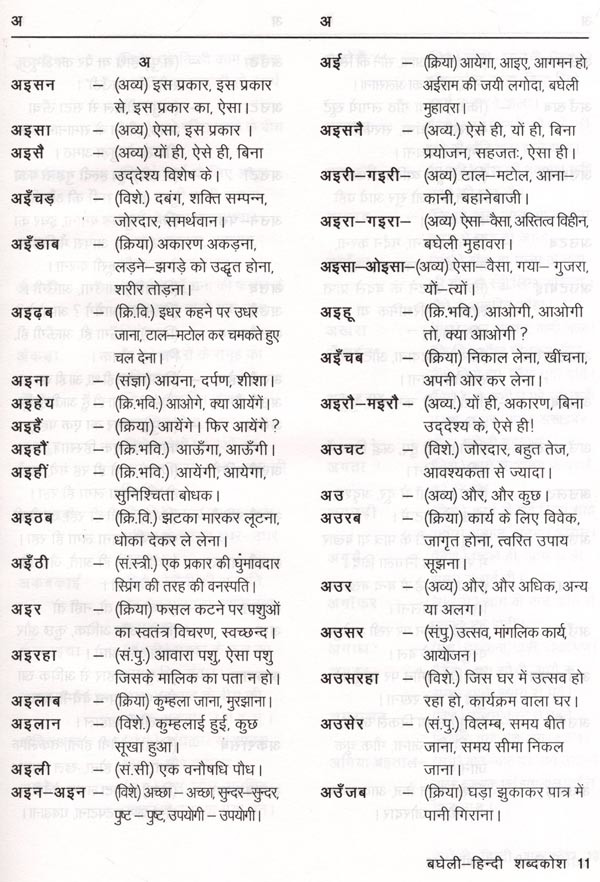 अ
अ
अ
अइसन – (अव्य) इस प्रकार, इस प्रकार
से, इस प्रकार का, ऐसा।
अइसा – (अव्य) ऐसा, इस प्रकार ।
अइसै – (अव्य) यों ही, ऐसे ही, बिना
उद्देश्य विशेष के।
अइँचड़ – (विशे.) दबंग, शक्ति सम्पन्न,
जोरदार, समर्थवान।
अइँडाब – (क्रिया) अकारण अकड़ना,
लड़ने–झगड़े को उद्धृत होना,
शरीर तोड़ना।
अइढ़ब – (क्रि.वि.) इधर कहने पर उधर
जाना, टाल–मटोल कर चमकते हुए
चल देना।
अइना – (संज्ञा) आयना, दर्पण, शीशा।
अइहेय – (क्रि.भवि.) आओगे, क्या आयेंगें।
अइहैं – (क्रिया) आयेंगे। फिर आयेंगे ?
अइहौं – (क्रि.भवि.) आऊँगा, आऊँगी।
अइही – (क्रि.भवि.) आयेंगी, आयेगा,
सुनिश्चिता बोधक।
अइठब – (क्रि.वि.) झटका मारकर लूटना,
धोका देकर ले लेना।
अइँठी – (सं.स्त्री.) एक प्रकार की घुंमावदार
स्प्रिंग की तरह की वनस्पति।
अइर – (क्रिया) फसल कटने पर पशुओं
का स्वतंत्र विचरण, स्वच्छन्द।
अइरहा – (सं.पु.) आवारा पशु, ऐसा पशु
जिसके मालिक का पता न हो।
अइलाब – (क्रिया) कुम्हला जाना, मुरझाना।
अइलान – (विशे.) कुम्हलाई हुई, कुछ
सूखा हुआ।
अइली – (सं.सी) एक वनौषधि पौध।
अइन–अइन – (विशे) अच्छा – अच्छा, सुन्दर–सुन्दर,
पुष्ट – पुष्ट, उपयोगी – उपयोगी।
अईं – (क्रिया) आयेगा, आइए, आगमन हो,
अईराम की जयी लगोदा, बघेली
मुहावरा।
अइसनै – (अव्य.) ऐसे ही, यों ही, बिना
प्रयोजन, सहजतः, ऐसा ही।
अइरी–गइरी – (अव्य) टाल–मटोल, आना–
कानी, बहानेबाजी।
अइरा–गइरा – (अव्य) ऐसा–वैसा, अस्तित्व विहीन,
बघेली मुहावरा।
अइसा–ओइसा – (अव्य) ऐसा–वैसा, गया– गुजरा,
यों–त्यों।
अइहू – (क्रि.भवि.) आओगी, आओगी
तो, क्या आओगी ?
अइँचब – (क्रिया) निकाल लेना, खींचना,
अपनी ओर कर लेना।
अइरौ–मइरौ – (अव्य.) यों ही, अकारण, बिना
उद्देश्य के, ऐसे ही!
अउचट – (विशे.) जोरदार, बहुत तेज,
आवश्यकता से ज्यादा।
अउ – (अव्य) और, और कुछ।
अउरब – (क्रिया) कार्य के लिए विवेक,
जागृत होना, त्वरित उपाय
सूझना।
अउर – (अव्य) और, और अधिक, अन्य
या अलग।
अउसर – (सं.पु.) उत्सव, मांगलिक कार्य,
आयोजन।
अउसरहा – (विशे.) जिस घर में उत्सव हो
रहा हो, कार्यक्रम वाला घर।
अउसेर – (सं.पु.) विलम्ब, समय बीत
जाना, समय सीमा निकल
जाना।
अउँजब – (क्रिया) घड़ा झुकाकर पात्र में
पानी गिराना।
बघेली–हिन्दी शब्दकोश 11